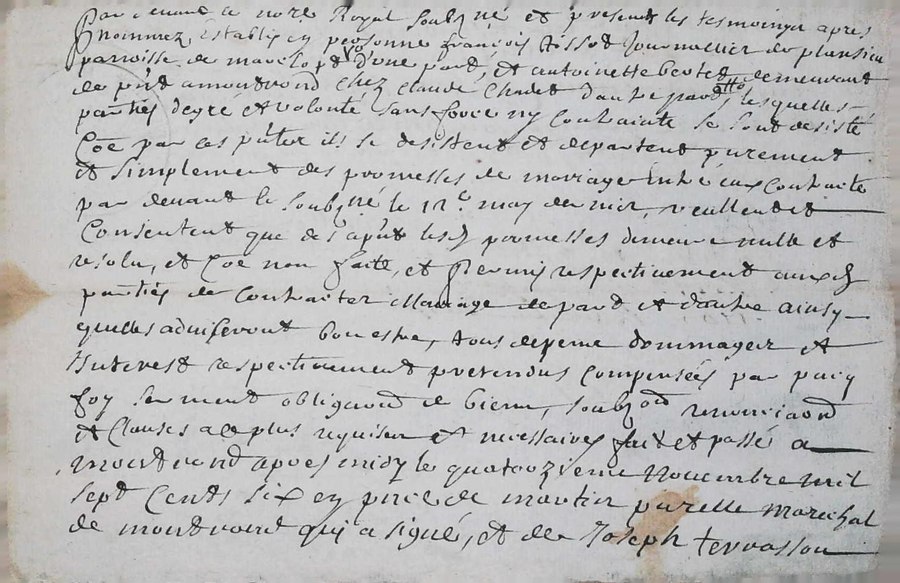 Par devant le no.re Royal soubz.né et presents les tesmoings apres
Nommez, establis en personne françois tissot Journallier de
parroisse de marclopt d'une part, et antoinette bertet demeurant
de p.nt a montrond chez Claude Chadet d'autre part lesquelles
parties de gre et volonté sans force ny Contrainte se sont desisté
Coe par ces p.ntes ils se desistent et departent purement
et simplement des promesses de mariage entre eux Contracté
par devant le soubz.né le may dernier, veullent et
Consentent que des a p.nt lesd promesses demeure nulle et
resolu, et Coe non faite, et permis respectivement auxd
parties de Contracter Mariage de part et d'autre ainsy
quelles adviseront bon estre, tous depens dommages et
Interest respectivement pretendus Compensés par
foy serment obligaon de biens, soubz.on renonciaon
et Clauses a ce plus requises et necessaires fait et passé a
montrond apres midy le quatorzieme Novembre mil
sept Cents six en p.nce de martin Marechal
de montrond qui a signé, et de Joseph terrasson